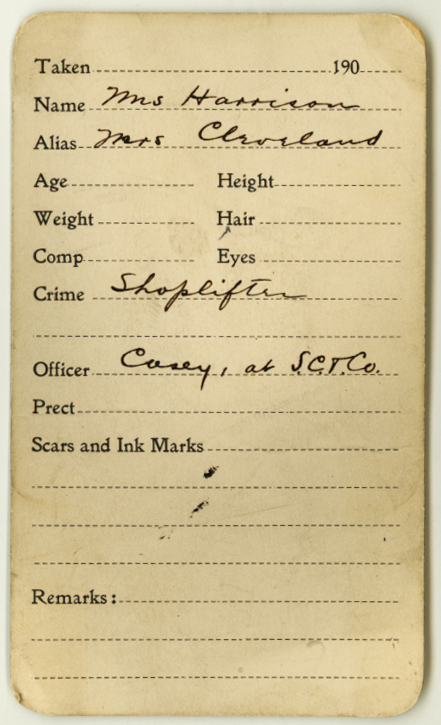 Taken 190
Name Mrs Harrison
Alias Mrs Cleveland
Age Height
Weight Hair
Comp Eyes
Crime Shoplifter
Officer Casey, at S.C.&Co.
Prect
Scars and Ink Marks
Remarks: